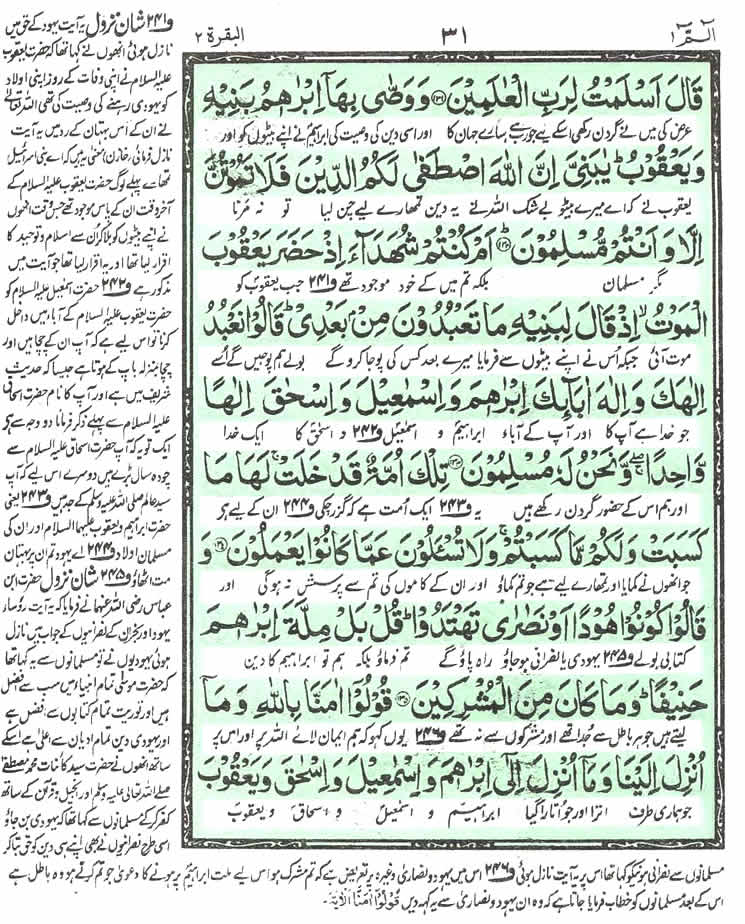 الٓمّٓ ۱
۳۱
البقرة ۲
قَالَ اَسْلَمْتُ لِرَبِّ الْعٰلَمِيْنَ وَوَصّٰى بِهَآ اِبْرٰهٖمُ بَنِيْهِ
عرض کی میں نے گردن رکھی اسکے لیے جو رب ہے سارے جہان کا اور اسی دین کی وصیت کی ابراہیم نے اپنے بیٹوں کو اور
وَيَعْقُوْبُ ؕ يٰبَنِىَّ اِنَّ اللّٰهَ اصْطَفٰى لَكُمُ الدِّيْنَ فَلَا تَمُوْتُنَّ
یعقوب نے کہ اے میرے بیٹو بے شک اللہ نے یہ دین تمھارے لیے چن لیا تو نہ مرنا
اِلَّا وَاَنْتُمْ مُّسْلِمُوْنَ ؕ اَمْ كُنْتُمْ شُهَدَآءَ اِذْ حَضَرَ يَعْقُوْبَ
مگر مسلمان بلکہ تم میں کے خود موجود تھے و۲۴۱ جب یعقوب کو
الْمَوْتُ ۙ اِذْ قَالَ لِبَنِيْهِ مَا تَعْبُدُوْنَ مِنْۢ بَعْدِىْ ؕ قَالُوْا نَعْبُدُ
موت آئی جبکہ اس نے اپنے بیٹوں سے فرمایا میرے بعد کس کی پوجا کرو گے بولے ہم پوجیں گے اُسے
اِلٰهَكَ وَاِلٰهَ اٰبَآئِكَ اِبْرٰهٖمَ وَاِسْمٰعِيْلَ وَاِسْحٰقَ اِلٰهًا
جو خدا ہے آپ کا اور آپ کے آباء ابراہیم و اسمٰعیل و۲۴۲ و اسحٰق کا ایک خدا
وَّاحِدًا ۚ وَّنَحْنُ لَهٗ مُسْلِمُوْنَ تِلْكَ اُمَّةٌ قَدْ خَلَتْ ۚ لَهَا مَا
اور ہم اس کے حضور گردن رکھے ہیں یہ و۲۴۳ ایک اُمت ہے کہ گزر چکی و۲۴۴ ان کے لیے ہے
كَسَبَتْ وَلَكُمْ مَّا كَسَبْتُمْ ۚ وَلَا تُسْـَٔلُوْنَ عَمَّا كَانُوْا يَعْمَلُوْنَ وَ
جو انھوں نے کمایا اور تمھارے لیے ہے جو تم کماؤ اور ان کے کاموں کی تم سے پرسش نہ ہوگی اور
قَالُوْا كُوْنُوْا هُوْدًا اَوْ نَصٰرٰى تَهْتَدُوْا ؕ قُلْ بَلْ مِلَّةَ اِبْرٰهٖمَ
کتابی بولے و۲۴۵ یہودی یا نصرانی ہوجاؤ راہ پاؤ گے تم فرماؤ بلکہ ہم تو ابراہیم کا دین
حَنِيْفًا ؕ وَمَا كَانَ مِنَ الْمُشْرِكِيْنَ قُوْلُوْٓا اٰمَنَّا بِاللّٰهِ وَمَآ
لیتے ہیں جو ہر باطل سے جدا تھے اور مشرکوں سے نہ تھے و۲۴۶ یوں کہو کہ ہم ایمان لائے اللہ پر اور اس پر
اُنْزِلَ اِلَيْنَا وَمَآ اُنْزِلَ اِلٰٓى اِبْرٰهٖمَ وَاِسْمٰعِيْلَ وَاِسْحٰقَ وَيَعْقُوْبَ
جو ہماری طرف اترا اور جو اتارا گیا ابراہیم و اسمٰعیل و اسحاق و یعقوب
و۲۴۱ شان نزول یہ آیت یہود کے حق میں
نازل ہوئی انھوں نے کہا تھا کہ حضرت یعقوب
علیہ السلام نے اپنی وفات کے روز اپنی اولاد
کو یہودی رہنے کی وصیت کی تھی اللہ تعالیٰ
نے ان کے اس بہتان کے رد میں یہ آیت
نازل فرمائی (خازن) معنیٰ یہ ہیں کہ اے بنی اسرائیل
تمھارے پہلے لوگ حضرت یعقوب علیہ السلام کے
آخر وقت ان کے پاس موجود تھے جس وقت انھوں
نے اپنے بیٹوں کو بلا کر ان سے اسلام و توحید کا
اقرار لیا تھا اور یہ اقرار لیا تھا جو آیت میں
مذکور ہے و۲۴۲ حضرت اسمٰعیل علیہ السلام کو
حضرت یعقوب علیہ السلام کے آباء میں داخل
کرنا تو اس لیے ہے کہ آپ ان کے چچا ہیں اور
چچا بمنزلہ باپ کے ہوتا ہے جیسا کہ حدیث
شریف میں ہے اور آپ کا نام حضرت اسحاق
علیہ السلام سے پہلے ذکر فرمانا دو وجہ سے ہے
ایک تو یہ کہ آپ حضرت اسحاق علیہ السلام سے
چودہ سال بڑے ہیں دوسرے اس لیے کہ آپ
سید عالم صلی اللہ علیہ وسلم کے جد ہیں و۲۴۳ یعنی
حضرت ابراہیم و یعقوب علیہما السلام اور ان کی
مسلمان اولاد و۲۴۴ اے یہود تم ان پر بہتان
مت اٹھاؤ و۲۴۵ شان نزول حضرت ابن
عباس رضی اللہ عنہما نے فرمایا کہ یہ آیت رؤساء
یہود اور نجران کے نصرانیوں کے جواب میں نازل
ہوئی یہودیوں نے تو مسلمانوں سے یہ کہا تھا
کہ حضرت موسیٰ تمام انبیاء میں سب سے افضل
ہیں اور توریت تمام کتابوں سے افضل ہے
اور یہودی دین تمام ادیان سے اعلیٰ ہے اسکے
ساتھ انھوں نے حضرت سید کائنات محمد مصطفےٰ
صلے اللہ تعالیٰ علیہ وسلم اور انجیل و قرآن کے ساتھ
کفر کر کے مسلمانوں سے کہا تھا کہ یہودی بن جاؤ
اسی طرح نصرانیوں نے بھی اپنے ہی دین کو حق بتا کر
مسلمانوں سے نصرانی ہونے کو کہا تھا اس پر یہ آیت نازل ہوئی و۲۴۶ اس میں یہود و نصاریٰ وغیرہ پر تعریض ہے کہ تم مشرک ہو اس لیے ملت ابراہیم پر ہونے کا دعویٰ جو تم کرتے ہو وہ باطل ہے
اس کے بعد مسلمانوں کو خطاب فرمایا جاتا ہے کہ وہ ان یہود و نصاریٰ سے یہ کہہ دیں قُوْلُوْٓا اٰمَنَّا الْاٰيَةَ۔